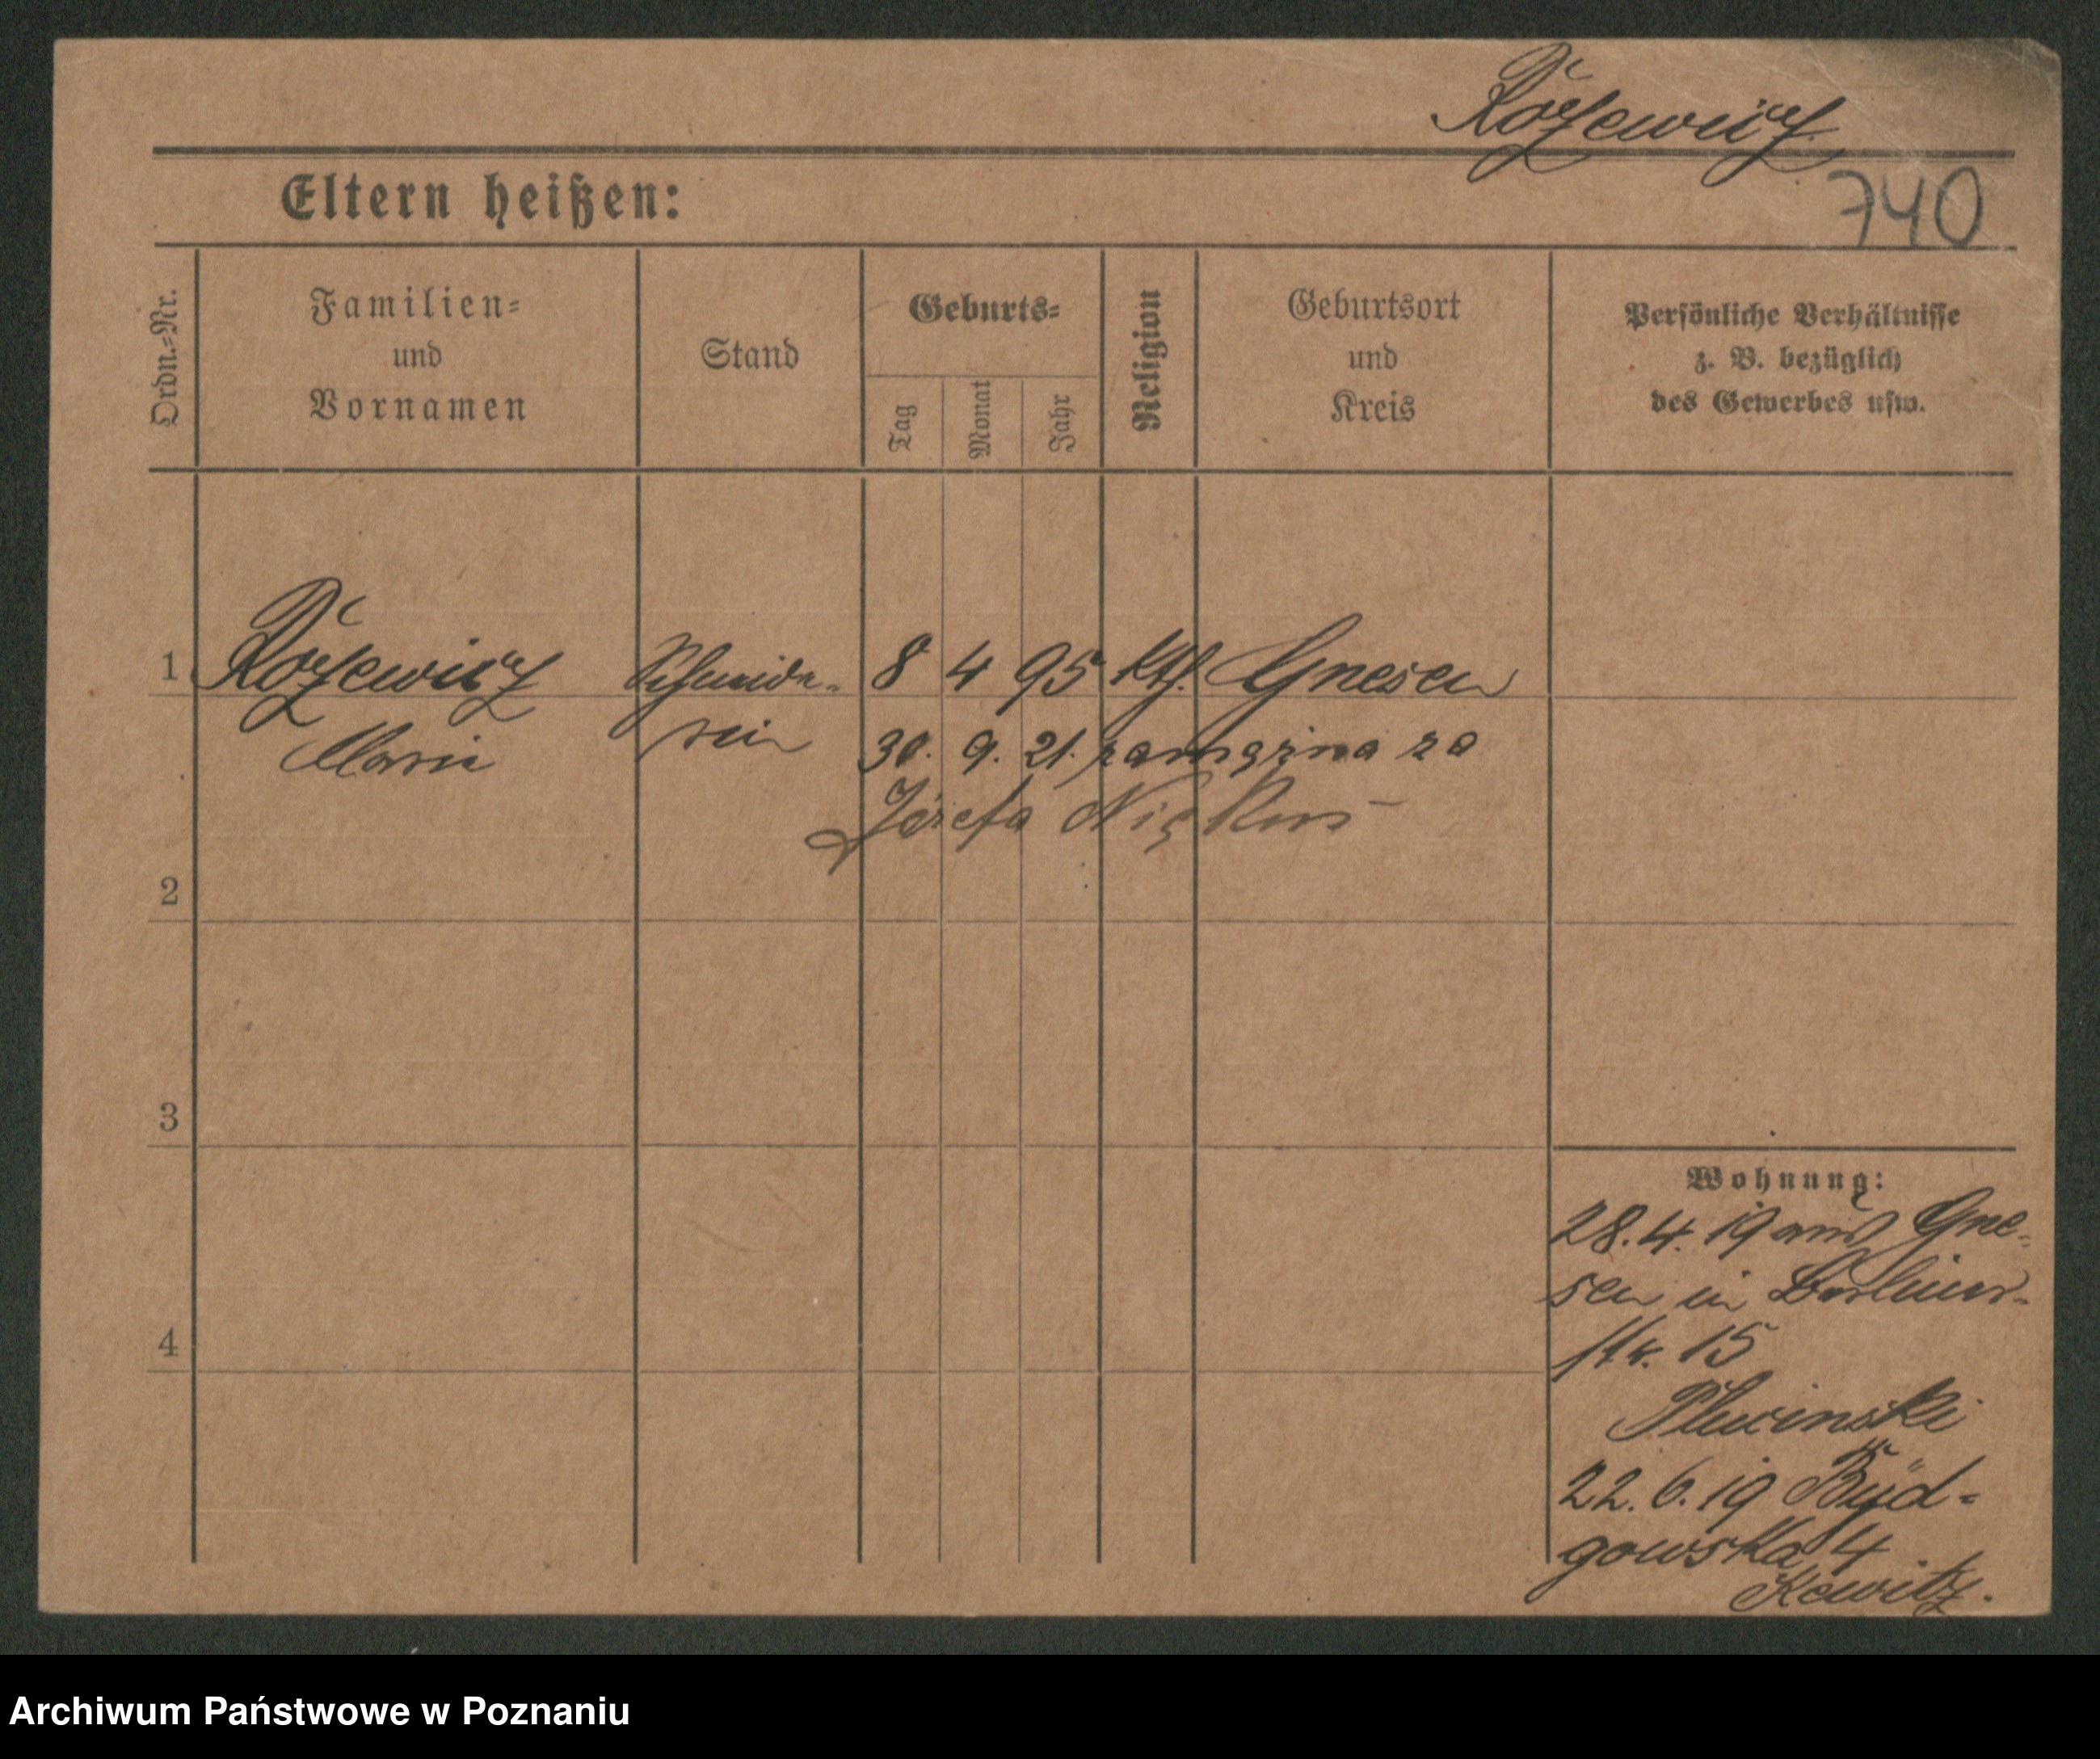 Rożewicz
740
Eltern heißen:
Ordn.-Nr.
Familien-
und
Vornamen
Stand
Geburts-
Tag
Monat
Jahr
Religion
Geburtsort
und
Kreis
Persönliche Verhältnisse
z. B. bezüglich
des Gewerbes usw.
1 Rożewicz Schneide- 8 4 95 kth. Gnesen
Marie rin 30. 9. 21. zamężna za
Józefa
2
3
4
Wohnung:
28. 4. 19 aus Gne-
sen in Berliner-
str. 15
22. 6. 19 Byd-
gowska 4
Kewitz.
Archiwum Państwowe w Poznaniu